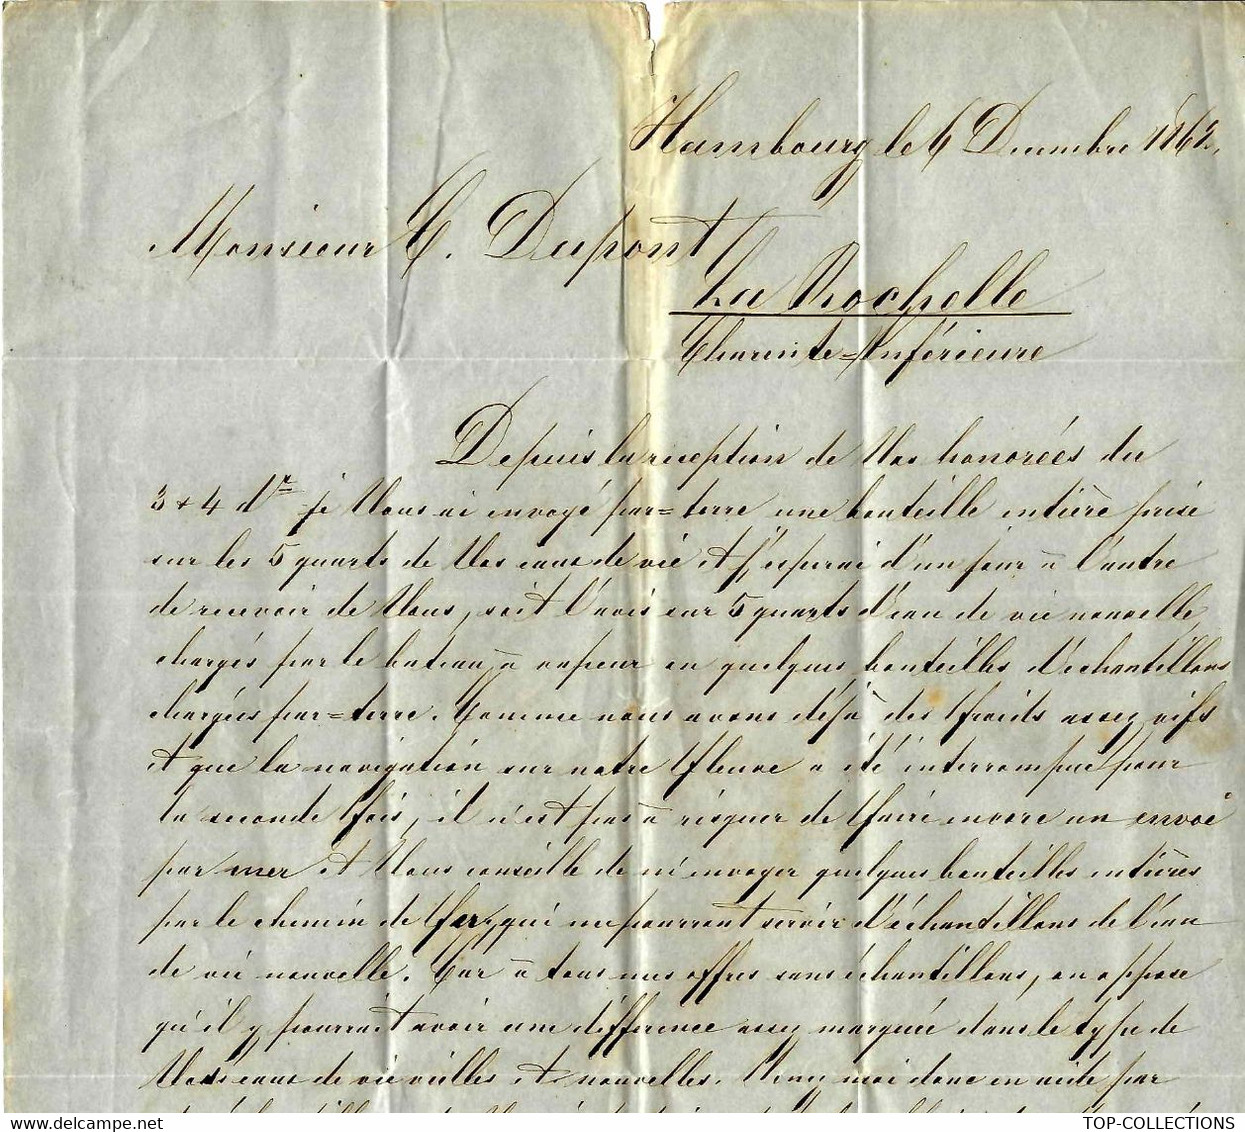 Hambourg le 6 Decembre 1862.
Monsieur C. Dupont
La Rochelle
Charente=Inférieure
Depuis la reception de Vos honorées du
3 & 4 dr je Vous ai envoyé par=terre une bouteille entière prise
sur les 5 quarts de Vos eaux de vie et j'esperai d'un jour à l'autre
de recevoir de Vous, soit l'avis sur 5 quarts d'eau de vie nouvelle
chargés par le bateau à vapeur ou quelques bouteilles d'échantillons
chargées par=terre. Comme nous avons déjà des froids assez vifs
et que la navigation sur notre fleuve a été interrompue pour
la seconde fois, il n'est pas à risquer de faire encore un envoi
par mer et Vous conseille de m'envoyer quelques bouteilles entières
par le chemin de fer, qui me pourront servir d'échantillons de l'eau
de vie nouvelle. Car à tous mes offres sans échantillons, on oppose
qu'il y pourrait avoir une différence assez marquée dans le type de
Vos eaux de vie vieilles et nouvelles. Venez moi donc en aide par
TOP-COLLECTIONS